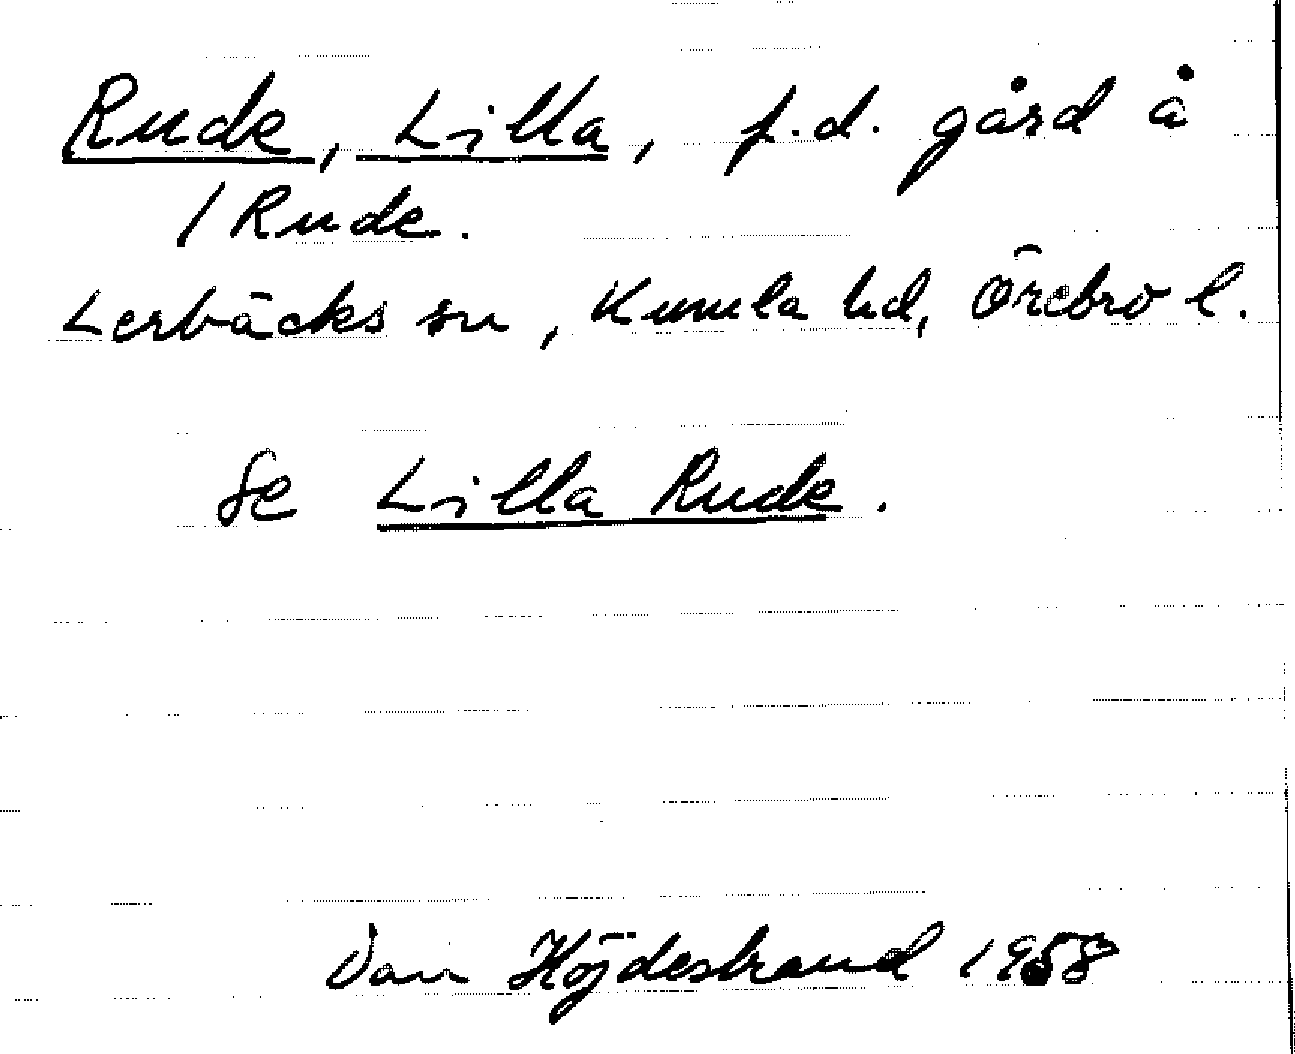 Rude, Lilla, f.d. gård å
/ Rude.
Lerbäcks sn, Kumla hd, Örebro l.
Se Lilla Rude.
Dan Höjdestrand 1958